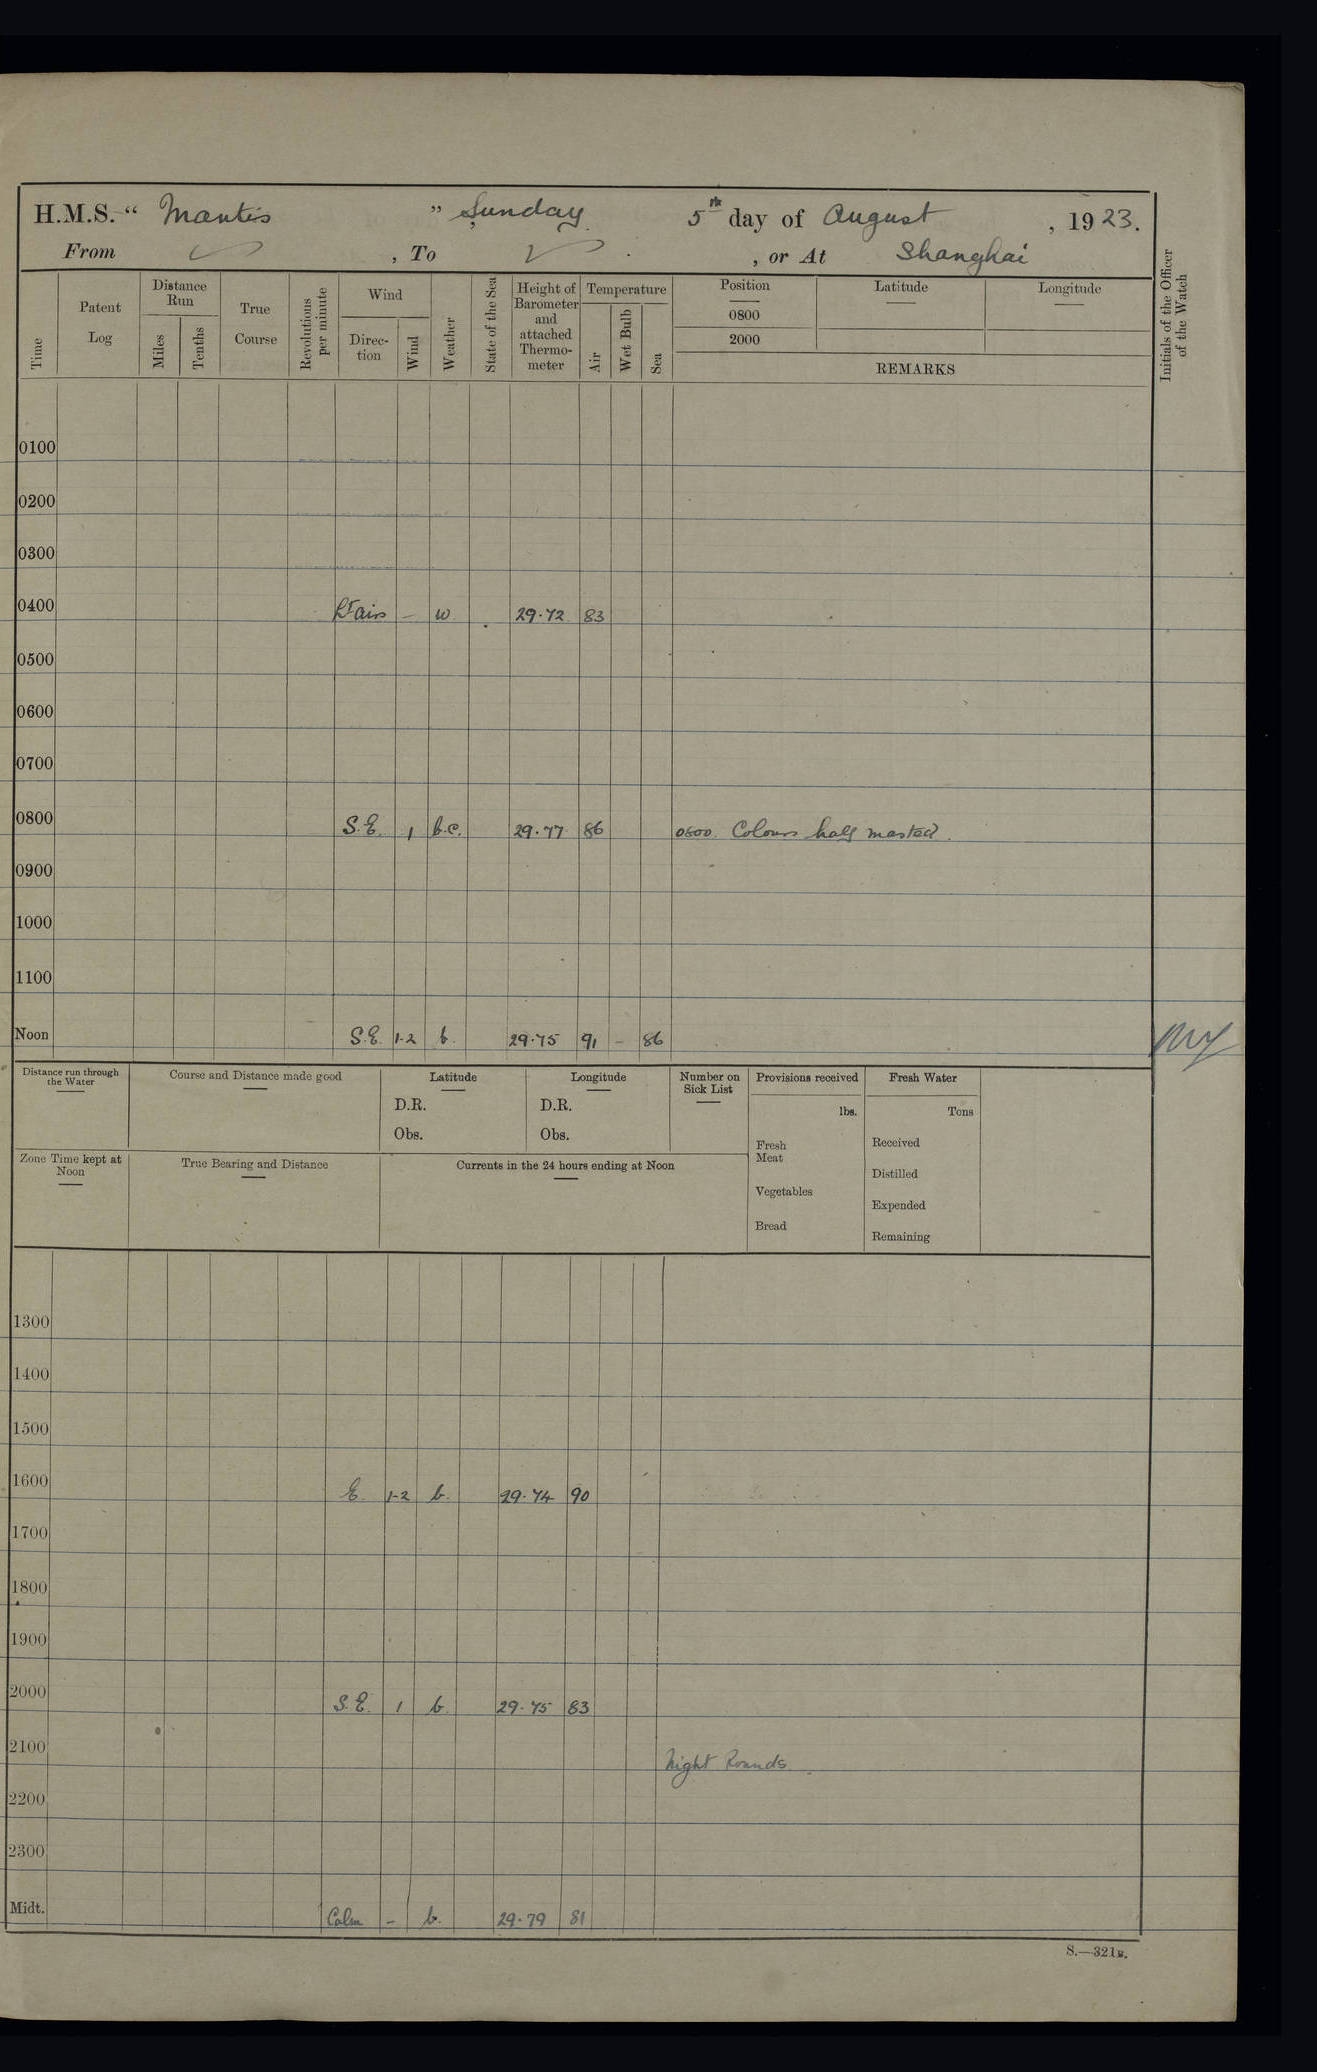 H.M.S. “ Mantis ” Sunday 5th day of August , 1923.
From , To , or At Shanghai
Time
Patent Log
Distance Run
Miles
Tenths
True Course
Revolutions per minute
Wind
Direc-tion
Wind
Weather
State of the Sea
Height of Barometer and attached Thermo-meter
Temperature
Air
Wet Bulb
Sea
Position
0800
2000
Latitude
Longitude
REMARKS
Initials of the Officer of the Watch
0100
0200
0300
0400 Lt airs – w 29.72 83
0500
0600
0700
0800 S.E. 1 b.c. 29.77 86 0800. Colours half masted.
0900
1000
1100
Noon S.E. 1-2 b. 29.75 91 – 86
Distance run through the Water
Course and Distance made good
Latitude
D.R.
Obs.
Longitude
D.R.
Obs.
Number on Sick List
Provisions received
lbs.
Fresh Meat
Vegetables
Bread
Fresh Water
Tons
Received
Distilled
Expended
Remaining
Zone Time kept at Noon
True Bearing and Distance
Currents in the 24 hours ending at Noon
1300
1400
1500
1600 E. 1-2 b. 29.74 90
1700
1800
1900
2000 S.E. 1 b. 29.75 83
2100 Night Rounds.
2200
2300
Midt. Calm – b. 29.79 81
S.—321B.